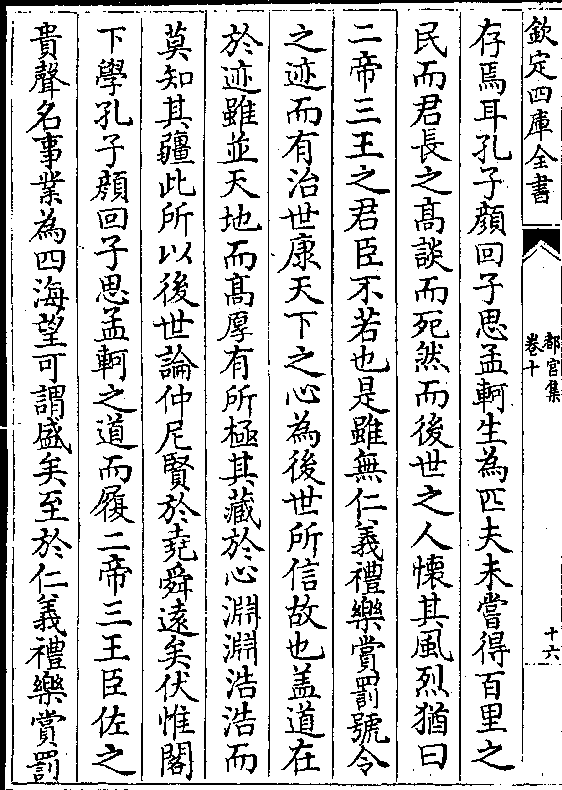 欽定四庫全書
都官集
卷十
十六
存焉耳孔子顔回子思孟軻生為匹夫未嘗得百里之
民而君長之髙談而死然而後世之人懐其風烈猶曰
二帝三王之君臣不若也是雖無仁義禮樂賞罰號令
之迹而有治世康天下之心為後世所信故也盖道在
於迹雖並天地而髙厚有所極其藏於心淵淵浩浩而
莫知其疆此所以後世論仲尼賢於堯舜逺矣伏惟閣
下學孔子顔回子思孟軻之道而履二帝三王臣佐之
貴聲名事業為四海望可謂盛矣至於仁義禮樂賞罰